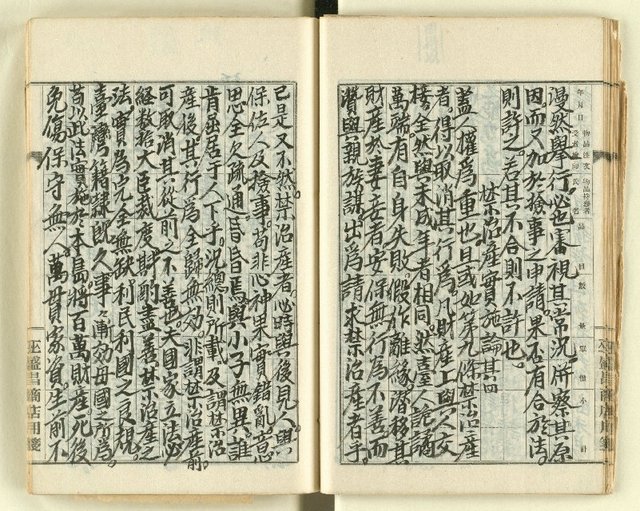 漫然舉行必也審視其常況併察其原
因而又加於檢事之申請果不有合於法
則許之若其不合則不許也。
禁治產實施論其四
蓋人權爲重也且或他第九條禁治產
者得以取消其行爲凡財產上與人交
接全然與未成年者相同然臺人詭譎
萬端有自身失敗假作離緣潛移其
財產於妻妾者安保無行爲不善而
潛與親族謀出爲請求禁治產者乎
已是又不然禁治產者必時與後見人與
保佐人及檢事苟非心神果實錯亂意
思全久疏通昏昏焉與小子無異誰
肯屈居于人下乎況總則所載及謂禁治
產後其行爲全歸無効非謂禁治產前
可取消其從前之不善也夫國家立法必
經數拾大臣裁度財酌盡善禁治產之
法實爲完全無缺利民利國之良規
臺灣籍隸既久事漸効母國之所爲
苟以此法實施於本島將百萬財產死後
免傷保守無人萬貫家資生前不
巫盛昌商店用箋
巫盛昌商店用箋